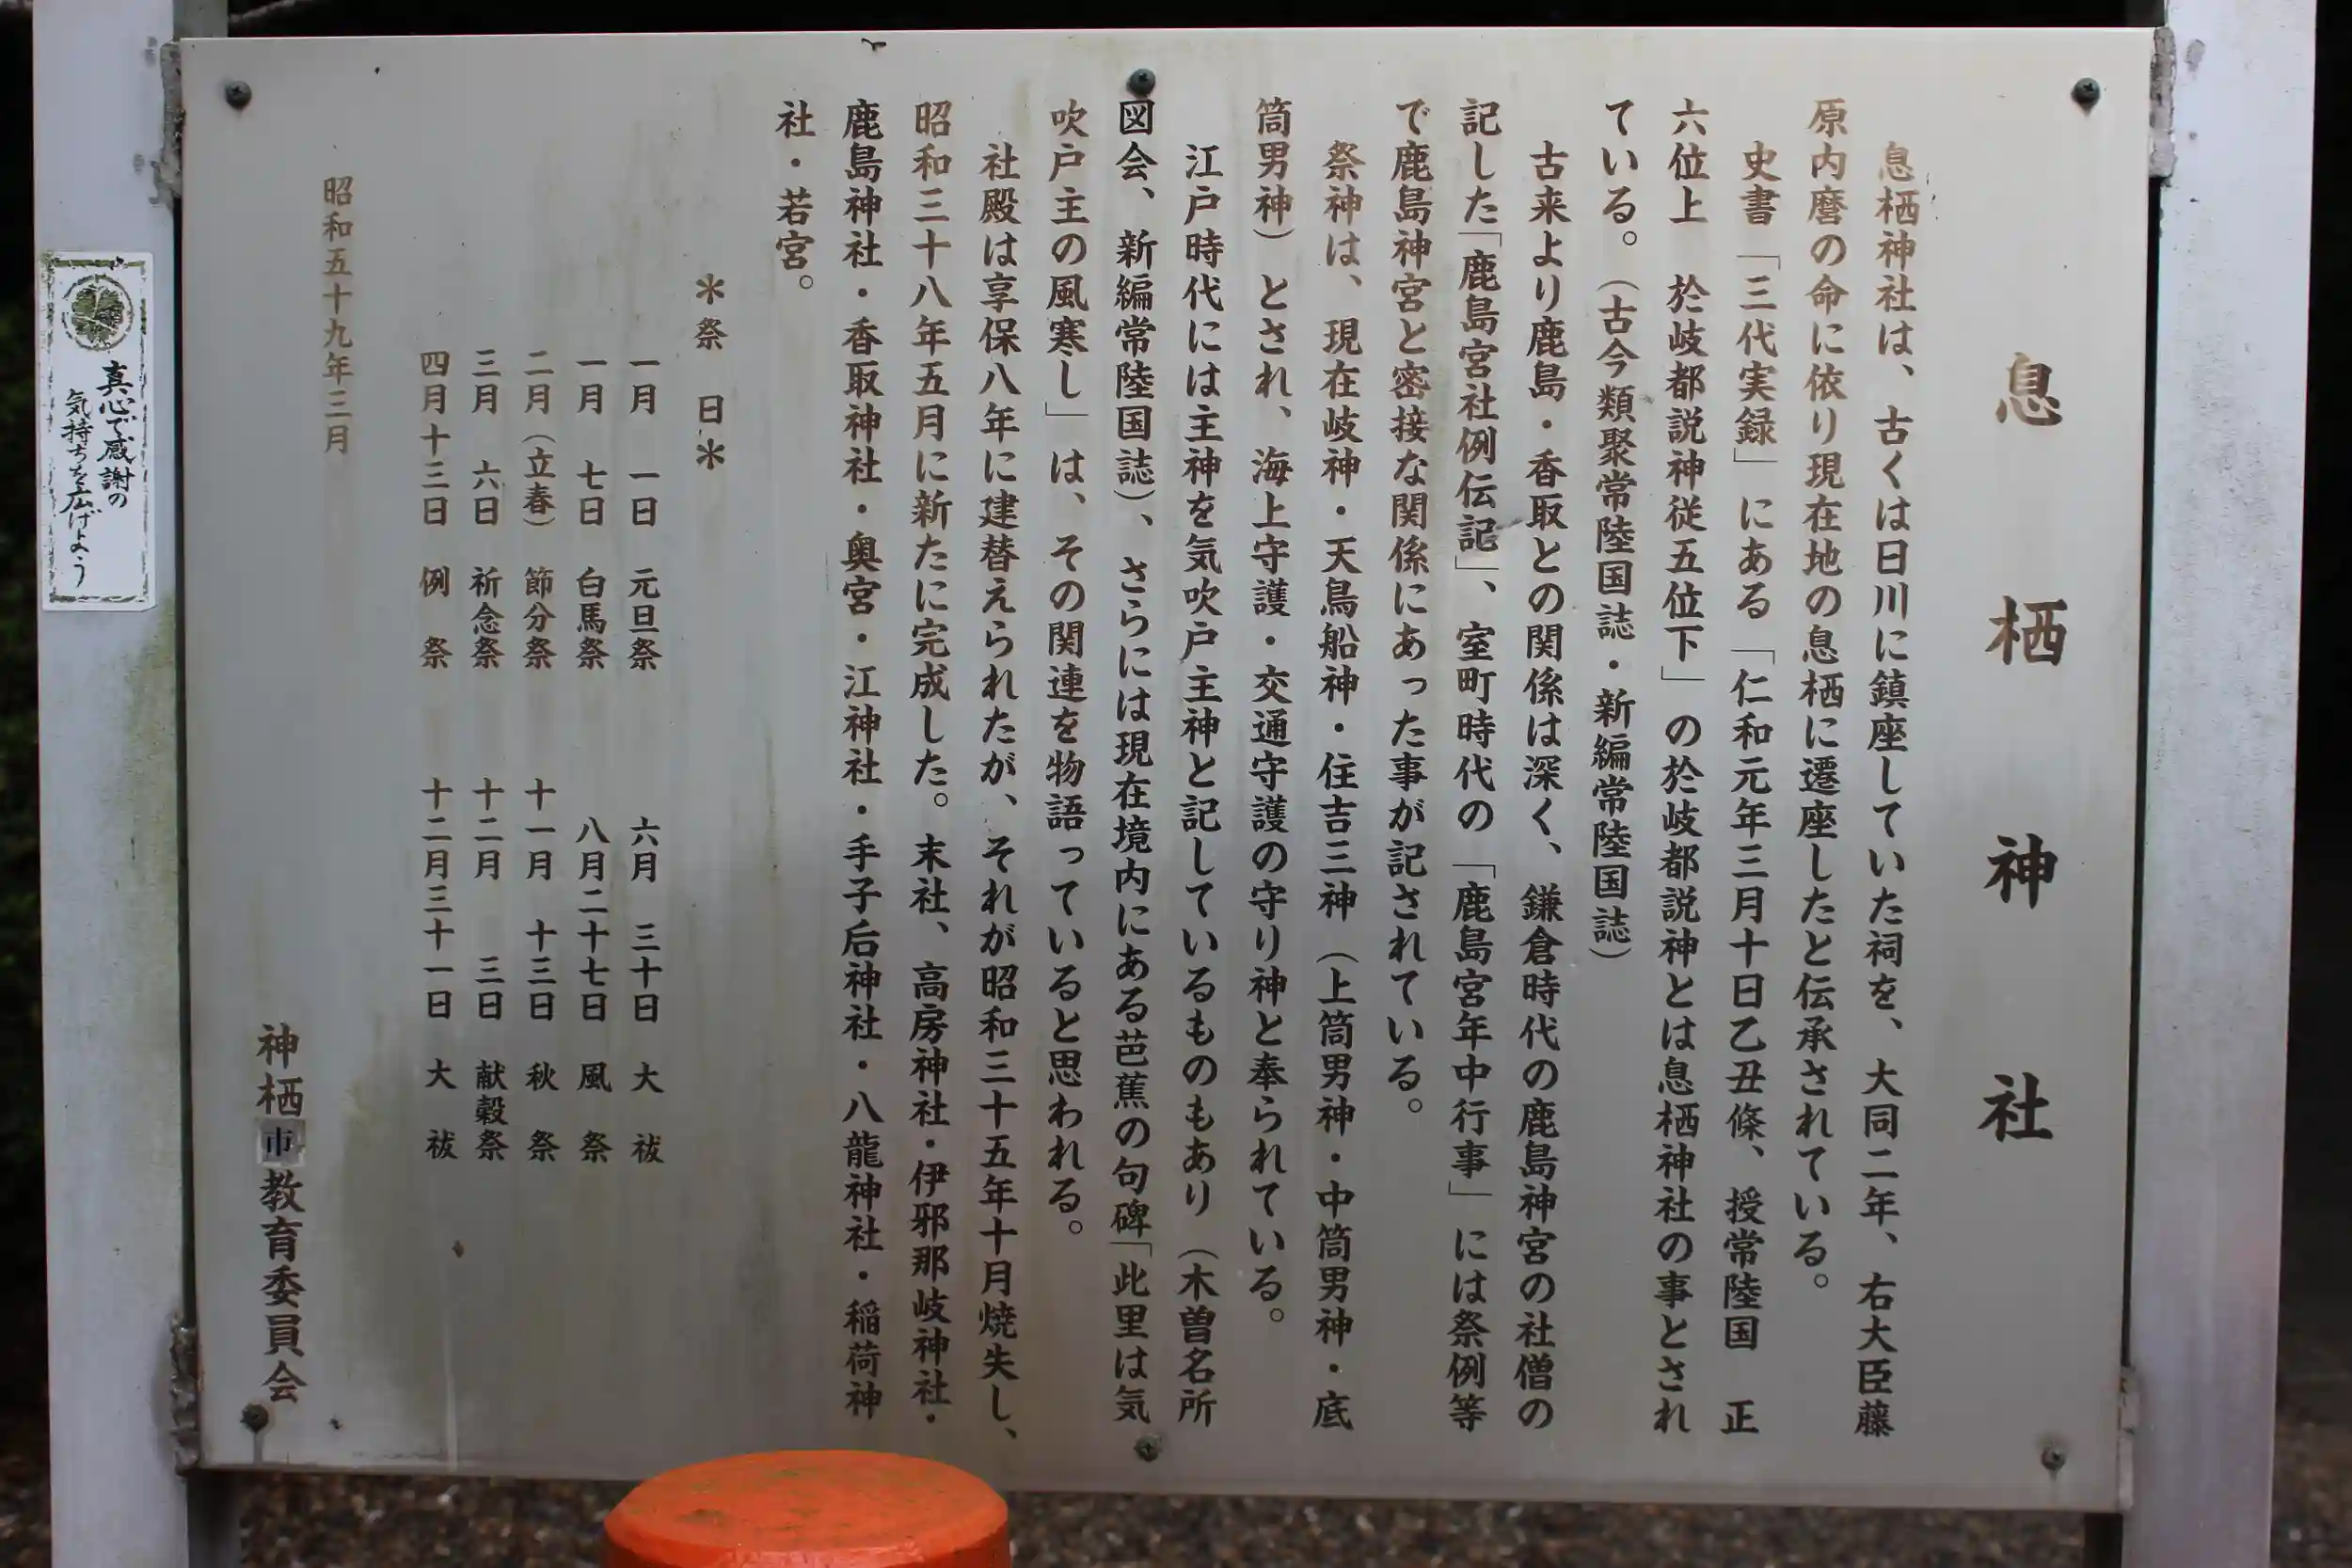 息栖神社
息栖神社は、古くは日川に鎮座していた祠を、大同二年、右大臣藤
原内麿の命に依り現在地の息栖に遷座したと伝承されている。
史書「三代実録」にある「仁和元年三月十日乙丑條、授常陸国　正
六位上　於岐都説神従五位下」の於岐都説神とは息栖神社の事とされ
ている。（古今類聚常陸国誌・新編常陸国誌）
古来より鹿島・香取との関係は深く、鎌倉時代の鹿島神宮の社僧の
記した「鹿島宮社例伝記」、室町時代の「鹿島宮年中行事」には祭例等
で鹿島神宮と密接な関係にあった事が記されている。
祭神は、現在岐神・天鳥船神・住吉三神（上筒男神・中筒男神・底
筒男神）とされ、海上守護・交通守護の守り神と奉られている。
江戸時代には主神を気吹戸主神と記しているものもあり（木曽名所
図会、新編常陸国誌）、さらには現在境内にある芭蕉の句碑「此里は気
吹戸主の風寒し」は、その関連を物語っていると思われる。
社殿は享保八年に建替えられたが、それが昭和三十五年十月焼失し、
昭和三十八年五月に新たに完成した。末社、高房神社・伊邪那岐神社・
鹿島神社・香取神社・奥宮・江神社・手子后神社・八龍神社・稲荷神
社・若宮。
＊祭　日＊
一月　一日　元旦祭　六月　三十日　大　祓
一月　七日　白馬祭　八月二十七日　風　祭
二月（立春）節分祭　十一月　十三日　秋　祭
三月　六日　祈念祭　十二月　三日　献穀祭
四月十三日　例　祭　十二月三十一日　大　祓
昭和五十九年三月
神栖市教育委員会
真心で感謝の
気持ちを広げよう